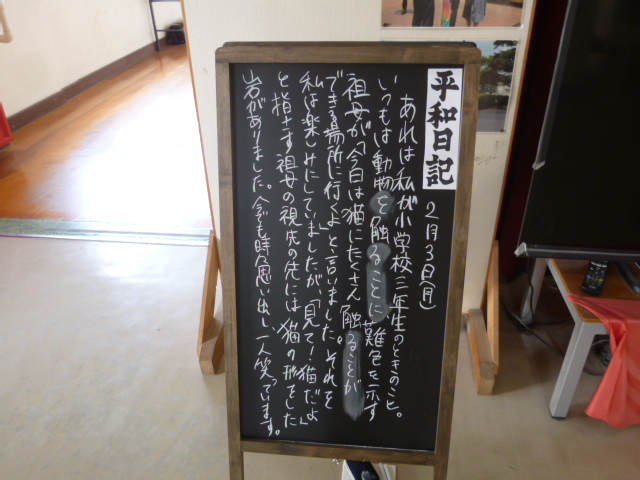 平和日記
2月3日(月)
あれは私が小学校三年生のときのこと。
いつもは動物を触ることに難色を示す
祖母が、「今日は猫にたくさん触ることが
できる場所に行くよ」と、言いました。それを
私は楽しみにしていましたが、「見て!猫だよ」
と指さす祖母の視先の先には猫の形をした
岩がありました。今でも時々思い出し、一人笑っています。